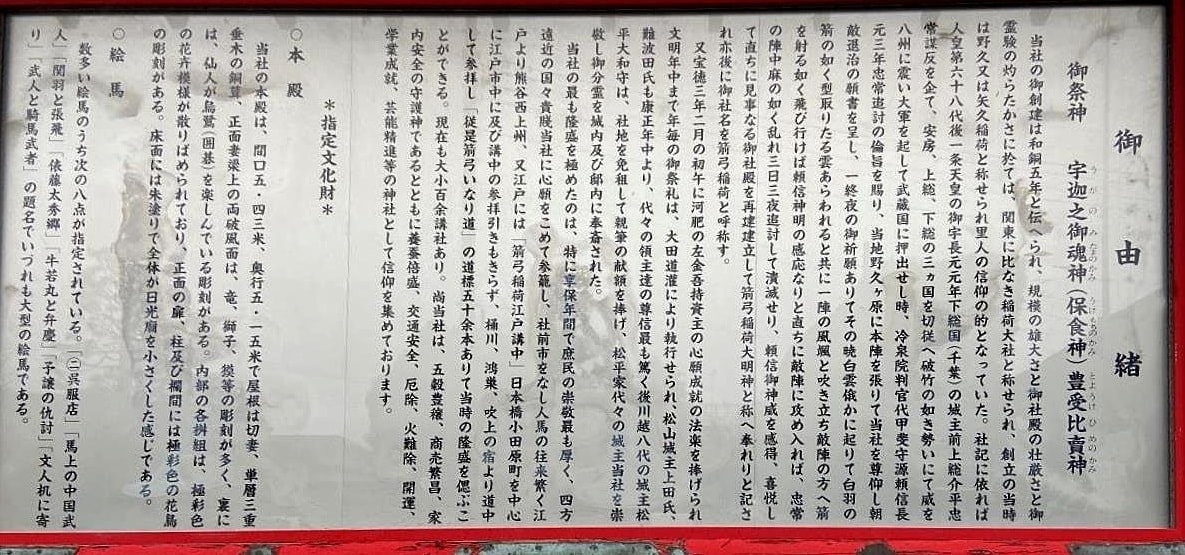 御由緒
御祭神　宇迦之御魂神（保食神）豊受比賣神
うがのみたまのかみ　うけもちのかみ　とようけひめのかみ
当社の御創建は和銅五年と伝へられ、規模の雄大さと御社殿の壮厳さと御
霊験の灼らたかさに於ては、関東に比なき稲荷大社と称せられ、創立の当時
は野久又は矢久稲荷と称せられ里人の信仰の的となっていた。社記に依れば
人皇第六十八代後一条天皇の御宇長元元年下総国（千葉）の城主前上総介平忠
常謀反を企て、安房、上総、下総の三ヵ国を切従へ破竹の如き勢いにて威を
八州に震い大軍を起して武蔵国に押出せし時、冷泉院判官代甲斐守源頼信長
元三年忠常追討の倫旨を賜り、当地野久ヶ原に本陣を張りて当社を尊仰し朝
敵退治の願書を呈し、一終夜の御祈願ありてその暁白雲俄かに起りて白羽の
箭の如く型取りたる雲あらわれると共に一陣の風颯と吹き立ち敵陣の方へ箭
を射る如く飛び行けば頼信神明の感応なりと直ちに敵陣に攻め入れば、忠常
の陣中麻の如く乱れ三日三夜追討して潰滅せり、頼信御神威を感得、喜悦し
て直ちに見事なる御社殿を再建建立して箭弓稲荷大明神と称へ奉れりと記さ
れ亦後に御社名を箭弓稲荷と呼称す。
又宝徳三年二月の初午に河肥の左金吾持資主の心願成就の法楽を捧げられ
文明年中まで年毎の御祭礼は、大田道灌により執行せられ、松山城主上田氏、
難波田氏も康正年中より、代々の領主達の尊信最も篤く後川越八代の城主松
平大和守は、社地を免租して親筆の献額を捧げ、松平家代々の城主当社を崇
敬し御分霊を城内及び邸内に奉斎された。
当社の最も隆盛を極めたのは、特に享保年間で庶民の崇敬最も厚く、四方
遠近の国々貴賤当社に心願をこめて参籠し、社前市をなし人馬の往来繁く江
戸より熊谷西上州、又江戸には「箭弓稲荷江戸講中」日本橋小田原町を中心
に江戸市中に及び講中の参拝引きもきらず、桶川、鴻巣、吹上の宿より道中
して参拝し「従是箭弓いなり道」の道標五十余本ありて当時の隆盛を偲ぶこ
とができる。現在も大小百余講社あり。尚当社は、五穀豊穣、商売繁昌、家
内安全の守護神であるとともに養蚕倍盛、交通安全、厄除、火難除、開運、
学業成就、芸能精進等の神社として信仰を集めております。
＊指定文化財＊
○本殿
当社の本殿は、間口五・四三米、奥行五・一五米で屋根は切妻、単層三重
垂木の銅葺、正面妻梁上の両破風面は、竜、獅子、獏等の彫刻が多く、裏に
は、仙人が烏鷺（囲碁）を楽しんでいる彫刻がある。内部の各桝組は、極彩色
の花卉模様が散りばめられており、正面の扉、柱及び欄間には極彩色の花鳥
の彫刻がある。床面には朱塗りで全体が日光廟を小さくした感じである。
○絵馬
数多い絵馬のうち次の八点が指定されている。「呉服店」「馬上の中国武
人」「関羽と張飛」「俵藤太秀郷」「牛若丸と弁慶」「子譲の仇討」「文人机に寄
り」「武人と騎馬武者」の題名でいづれも大型の絵馬である。